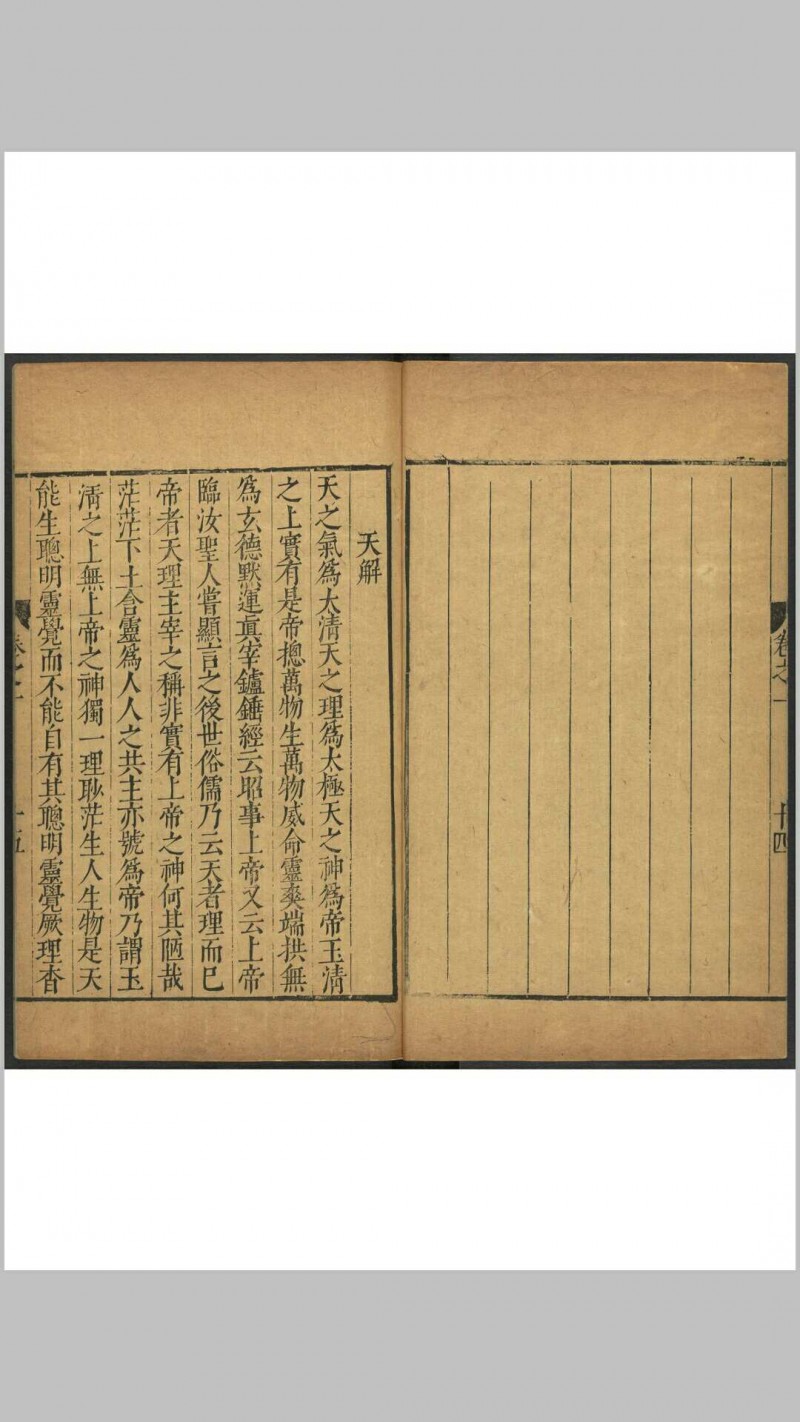 卷之一
十四
天解
天之氣爲太清天之理爲太極天之神爲帝玉清
之上實有是帝摠萬物生萬物威命靈爽端拱無
爲玄德默運眞宰鑪錘經云昭事上帝又云上帝
臨汝聖人嘗顯言之後世俗儒乃云天者理而已
帝者天理主宰之稱非實有上帝之神何其陋哉
茫茫下土含靈爲人人之共主亦號爲帝乃謂玉
清之上無上帝之神獨一理眇茫生人生物是天
能生聰明靈覺而不能自有其聰明靈覺厥理杳
卷之一
十五